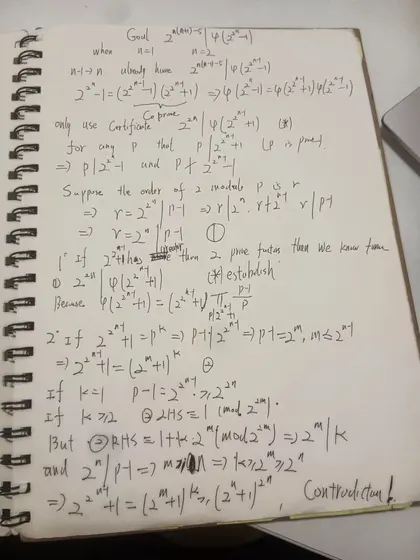 Goal 2^{n(n+1)-5} | φ(2^{2^n}-1)
when n=1 n=2
n-1→n already have 2^{n(n-1)-5} | φ(2^{2^{n-1}}-1)
2^{2^n}-1=(2^{2^{n-1}}-1)(2^{2^{n-1}}+1) ⇒ φ(2^{2^n}-1)=φ(2^{2^{n-1}}+1)φ(2^{2^{n-1}}-1)
Coprime
only use Certificate 2^{2n} | φ(2^{2^{n-1}}+1) (*)
for any p that p | 2^{2^{n-1}}+1 (p is prime).
⇒ p | 2^{2^n}-1 and p ∤ 2^{2^{n-1}}-1
Suppose the order of 2 modulo p is r
⇒ r | 2^n, r ∤ 2^{n-1} r | p-1
⇒ r=2^n | p-1 ①
1° If 2^{2^{n-1}}+1 has more than 2 prime factors then we know from
① 2^{2n} | φ(2^{2^{n-1}}+1) (*) establish
Because φ(2^{2^{n-1}}+1)=(2^{2^{n-1}}+1) ∏_{p|2^{2^{n-1}}+1} \frac{p-1}{p}
2° If 2^{2^{n-1}}+1=p^k ⇒ p-1 | 2^{2^{n-1}} ⇒ p-1=2^m, m≤2^{n-1}
⇒ 2^{2^{n-1}}+1=(2^m+1)^k ②
If k=1 p-1=2^{2^{n-1}} ≥ 2^{2n}
If k≥2 ② LHS≡1 (mod 2^{2m}).
But ② RHS≡1+k·2^m (mod 2^{2m}) ⇒ 2^m | k
and 2^n | p-1 ⇒ m≥n ⇒ k≥2^m≥2^n
⇒ 2^{2^{n-1}}+1=(2^m+1)^k≥(2^n+1)^{2^n}, Contradiction!